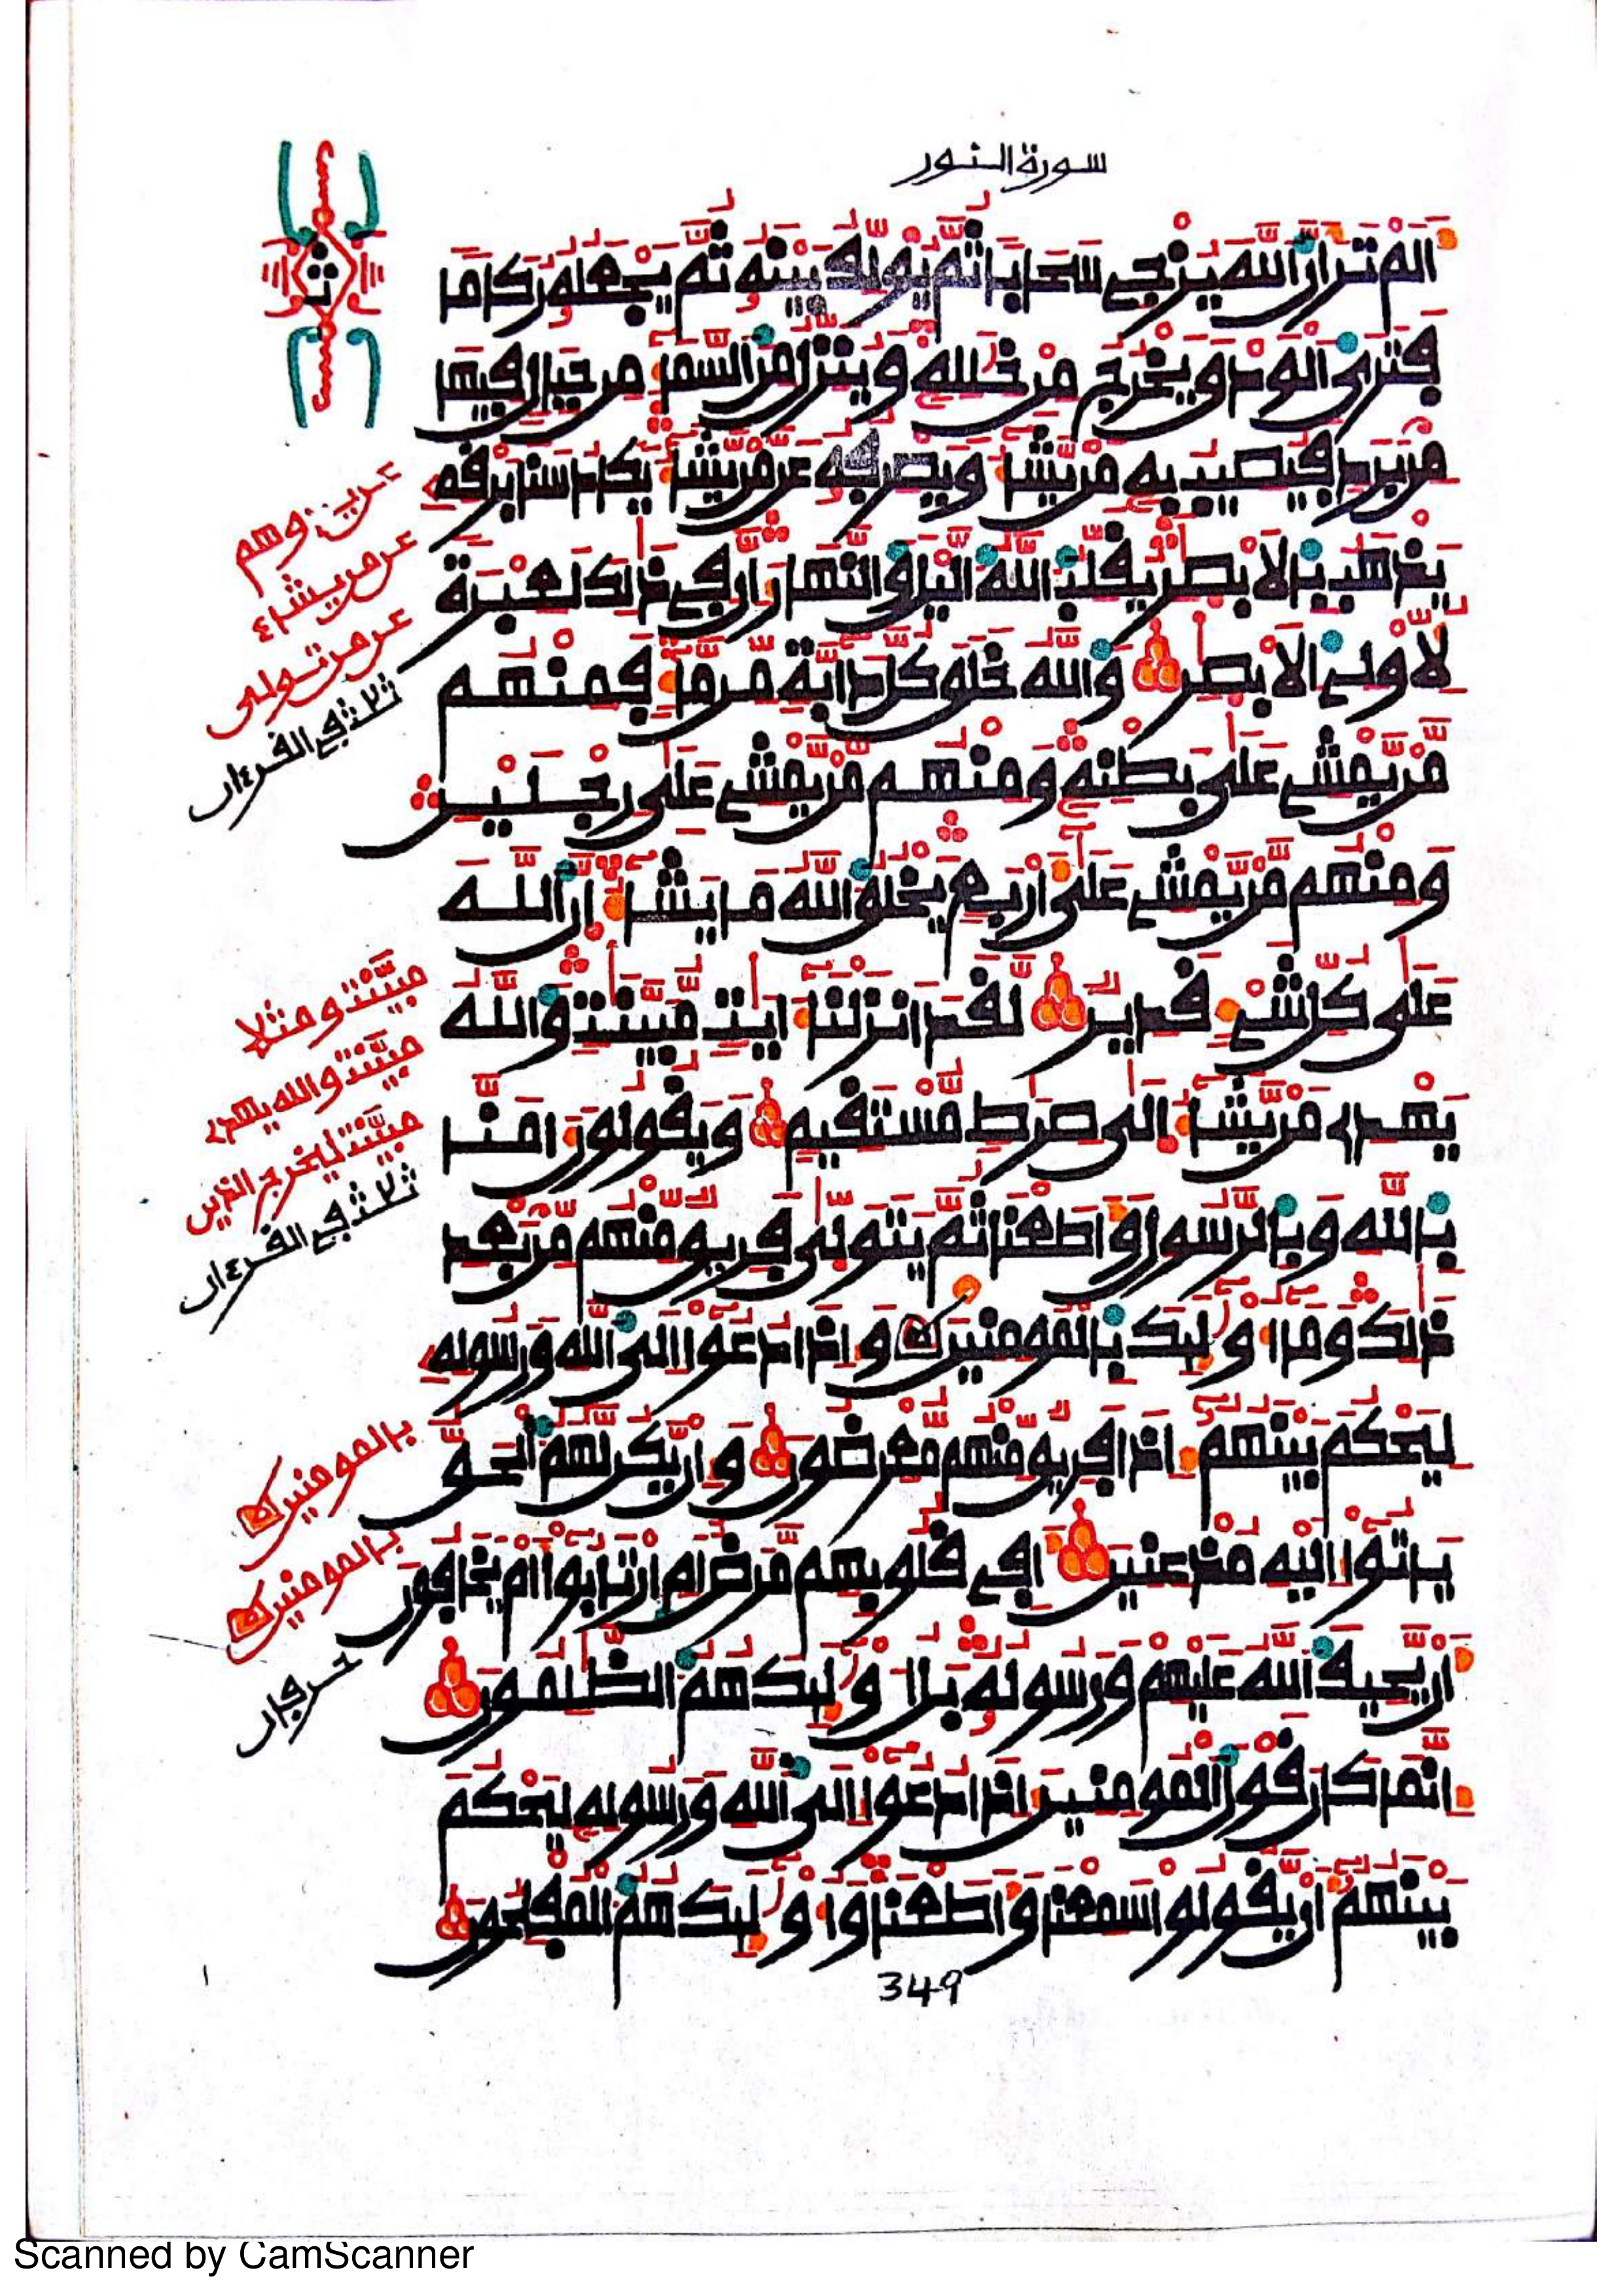 سورة النور
الم تر ان الله يزجى سحابا ثم يولف بينه ثم يجعله ركاما
فترى الودق يخرج من خلله وينزل من السما من جبال فيها
من برد فيصيب به من يشا ويصرفه عن من يشا يكاد سنا برقه
يذهب بالابصر يقلب الله اليل والنهار ان فى ذلك لعبرة
لاولى الابصر والله خلق كل دابة من ما فمنهم
من يمشى على بطنه ومنهم من يمشى على رجلين
ومنهم من يمشى على اربع يخلق الله ما يشا ان الله
على كل شى قدير لقد انزلنا ايت مبينت والله
يهدى من يشا الى صرط مستقيم ويقولون امنا
بالله وبالرسول واطعنا ثم يتولى فريق منهم من بعد
ذلك وما اوليك بالمومنين واذا دعوا الى الله ورسوله
ليحكم بينهم اذا فريق منهم معرضون وان يكن لهم الحق
ياتوا اليه مذعنين افى قلوبهم مرض ام ارتابوا ام يخافون
ان يحيف الله عليهم ورسوله بل اوليك هم الظلمون
انما كان قول المومنين اذا دعوا الى الله ورسوله ليحكم
بينهم ان يقولوا سمعنا واطعنا واوليك هم المفلحون
349
ث
عن من يشاء
عن من تولى
ثلاث فى القرءان
مبينت ومثلا
مبينت والله يهدى
مبينت ليخرج الذين
ثلاث فى القرءان
بالمومنين
بالمومنين
حرفان
Scanned by CamScanner